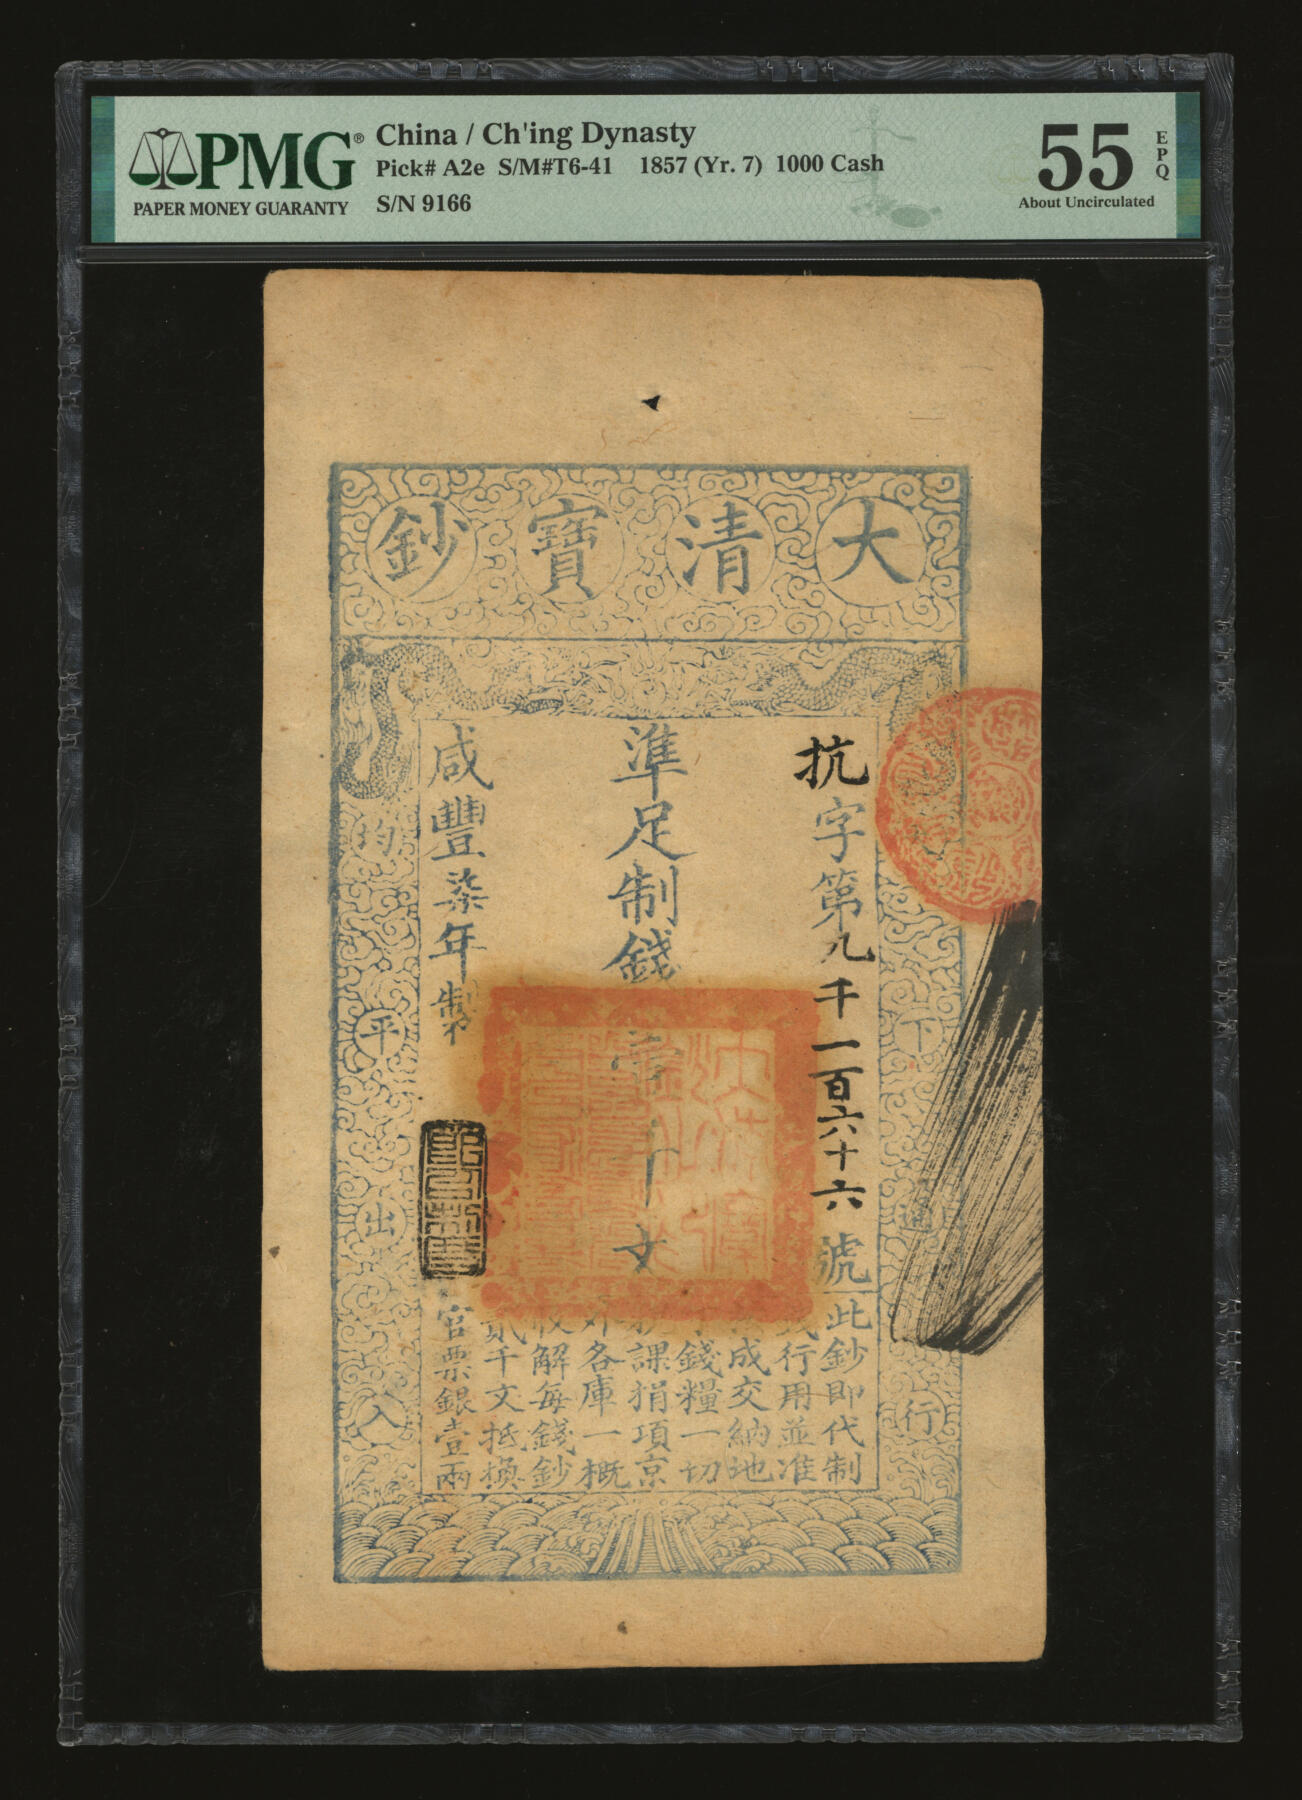 PMG®
PAPER MONEY GUARANTY
China / Ch'ing Dynasty
Pick# A2e S/M#T6-41 1857 (Yr. 7) 1000 Cash
S/N 9166
55
EPQ
About Uncirculated
大清寶鈔
抗字第九千一百六十六號
準足制錢壹千文
咸豐柒年製
下通行
均平出入
此鈔即代制
行用並准
成交納地
錢糧一切
課捐項京
外各庫一概
收解每錢鈔
貳千文抵換
官票銀壹兩